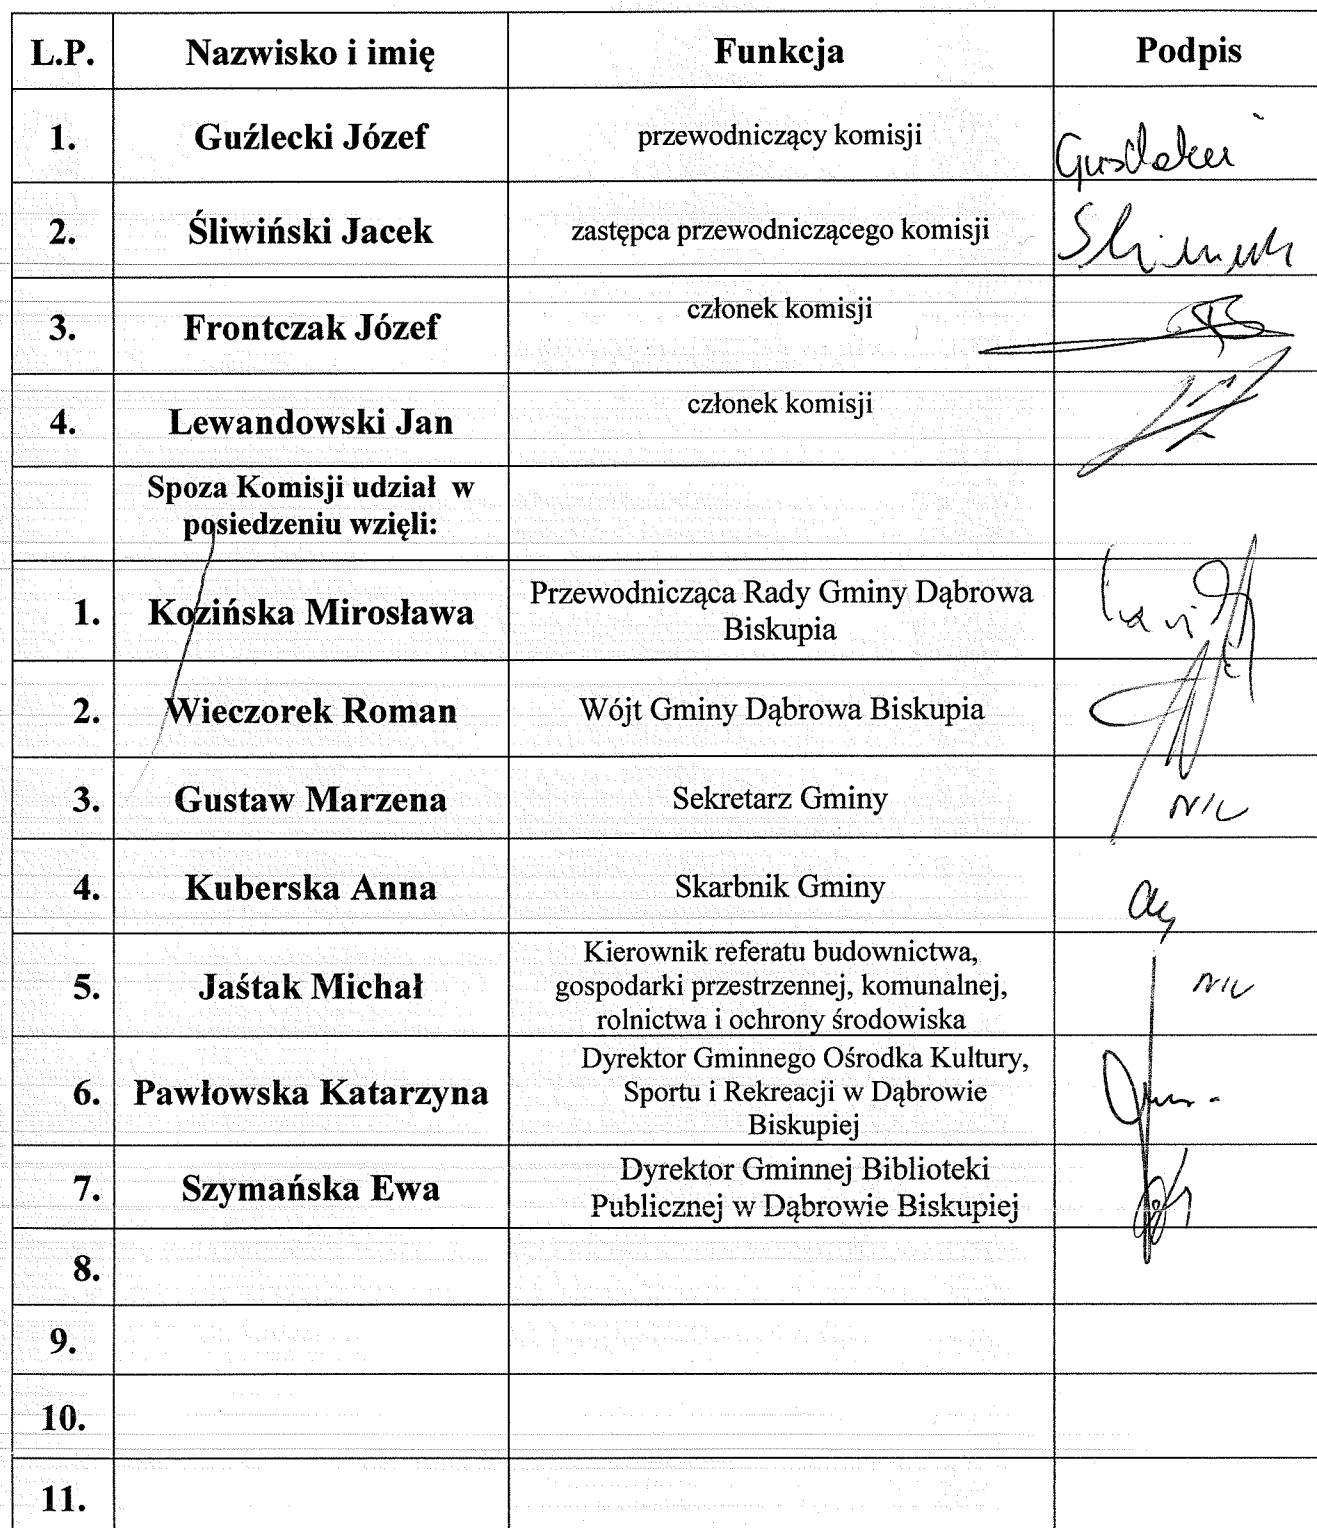 L.P. Nazwisko i imię Funkcja Podpis
1. Guźlecki Józef przewodniczący komisji
2. Śliwiński Jacek zastępca przewodniczącego komisji
3. Frontczak Józef członek komisji
4. Lewandowski Jan członek komisji
Spoza Komisji udział w
posiedzeniu wzięli:
1. Kozińska Mirosława Przewodnicząca Rady Gminy Dąbrowa
Biskupia
2. Wieczorek Roman Wójt Gminy Dąbrowa Biskupia
3. Gustaw Marzena Sekretarz Gminy
4. Kuberska Anna Skarbnik Gminy
Kierownik referatu budownictwa,
5. Jaśtak Michał gospodarki przestrzennej, komunalnej,
rolnictwa i ochrony środowiska
Dyrektor Gminnego Ośrodka Kultury,
6. Pawłowska Katarzyna Sportu i Rekreacji w Dąbrowie
Biskupiej
7. Szymańska Ewa Dyrektor Gminnej Biblioteki
Publicznej w Dąbrowie Biskupiej
8.
9.
10.
11.